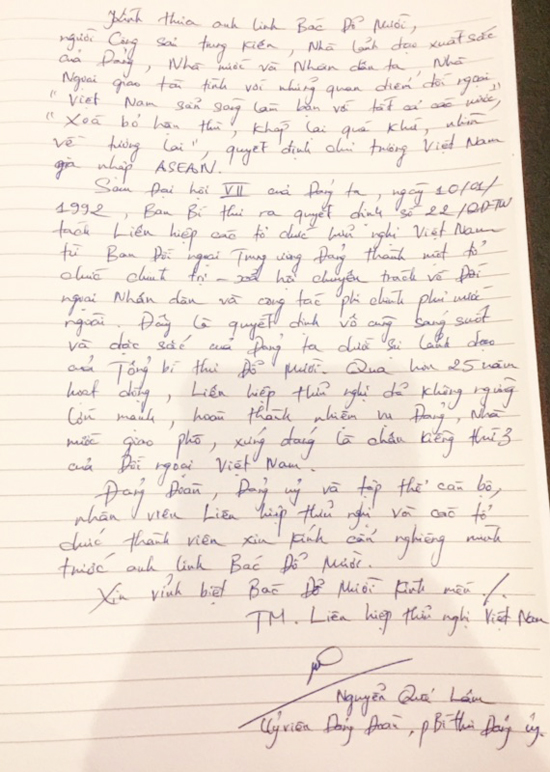 Kính thưa anh linh Bác Đỗ Mười,
người Cộng sản trung kiên, Nhà lãnh đạo xuất sắc
của Đảng, Nhà nước và Nhân dân ta, Nhà
Ngoại giao tài tình với những quan điểm đối ngoại
"Việt Nam sẵn sàng làm bạn với tất cả các nước,"
"Xoá bỏ hận thù, khép lại quá khứ, nhìn
về tương lai", quyết định chủ trương Việt Nam
gia nhập ASEAN.
Sau Đại hội VII của Đảng ta, ngày 10/01/
1992, Ban Bí thư ra quyết định số 22/QĐ-TW
tách Liên hiệp các tổ chức hữu nghị Việt Nam
từ Ban Đối ngoại Trung ương Đảng thành một tổ
chức chính trị - xã hội chuyên trách về Đối
ngoại Nhân dân và công tác phi chính phủ nước
ngoài. Đây là quyết định vô cùng sáng suốt
và đặc sắc của Đảng ta dưới sự lãnh đạo
của Tổng bí thư Đỗ Mười. Qua hơn 25 năm
hoạt động, Liên hiệp Hữu nghị đã không ngừng
lớn mạnh, hoàn thành nhiệm vụ Đảng, Nhà
nước giao phó, xứng đáng là chân kiềng thứ 3
của Đối ngoại Việt Nam.
Đảng Đoàn, Đảng uỷ và tập thể cán bộ,
nhân viên Liên hiệp Hữu nghị và các tổ
chức thành viên xin kính cẩn nghiêng mình
trước anh linh Bác Đỗ Mười.
Xin vĩnh biệt Bác Đỗ Mười kính mến./.
TM. Liên hiệp Hữu nghị Việt Nam
Nguyễn Quý Lâm
Uỷ viên Đảng Đoàn, p Bí thư Đảng uỷ.